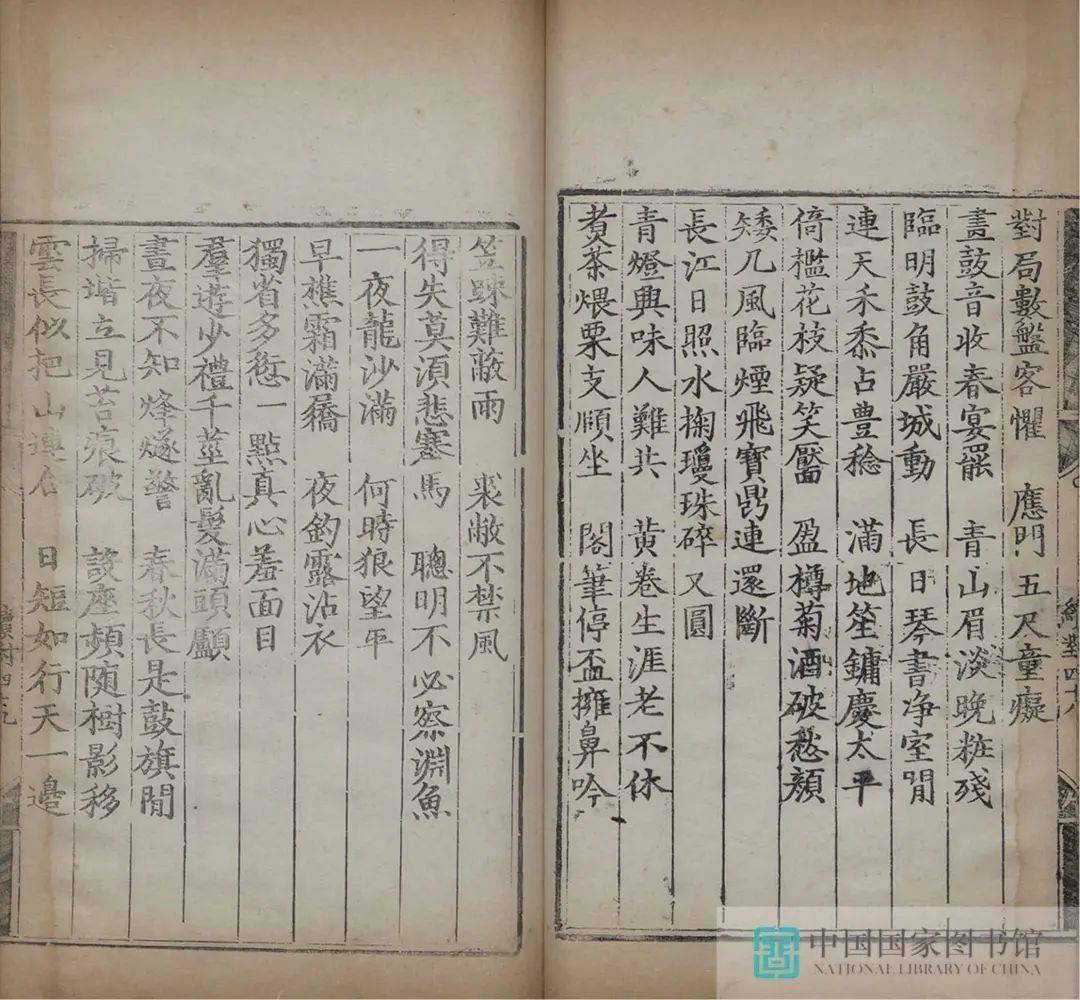 對局數盤客懼 應門五尺童癡
畫鼓音收春宴罷 青山眉淡晚粧殘
臨明鼓角嚴城動 長日琴書净室閒
連天禾黍占豊稔 滿地笙鏞慶太平
倚檻花枝疑笑靨 盈樽菊酒破愁顔
矮几風臨煙飛寶鼎連還斷
長江日照水掬瓊珠碎又圓
青燈興味人難共 黄卷生涯老不休
煑茶煨栗支頥坐 閣筆停盃擁鼻吟
對四十八
笠踈難蔽雨 裘敝不禁風
得失莫湏悲塞馬 聰明不必察淵魚
一夜龍沙滿 何時狼望平
早樵霜滿屩 夜釣露沾衣
獨省多愆一點真心羞面目
羣遊少禮千莖亂髮滿頭顱
晝夜不知烽燧警 春秋長是鼓旗閒
掃堦立見苔痕破 談座頻随樹影移
雲長似把山 日短如行天一邊
對四十九
中国国家图书馆
NATIONAL LIBRARY OF CHINA